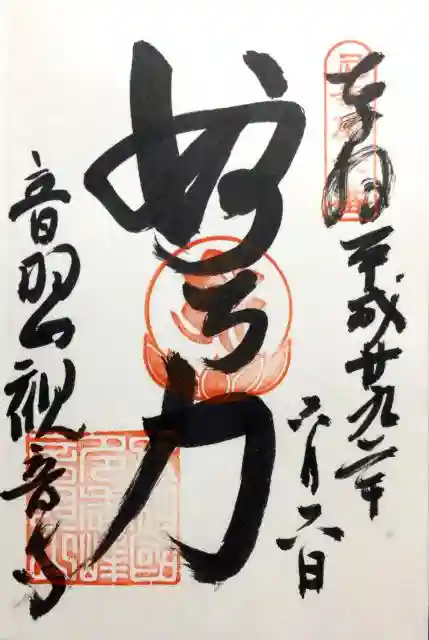 奉拝 平成廿九年
六月六日
妙智力
音羽山観音寺